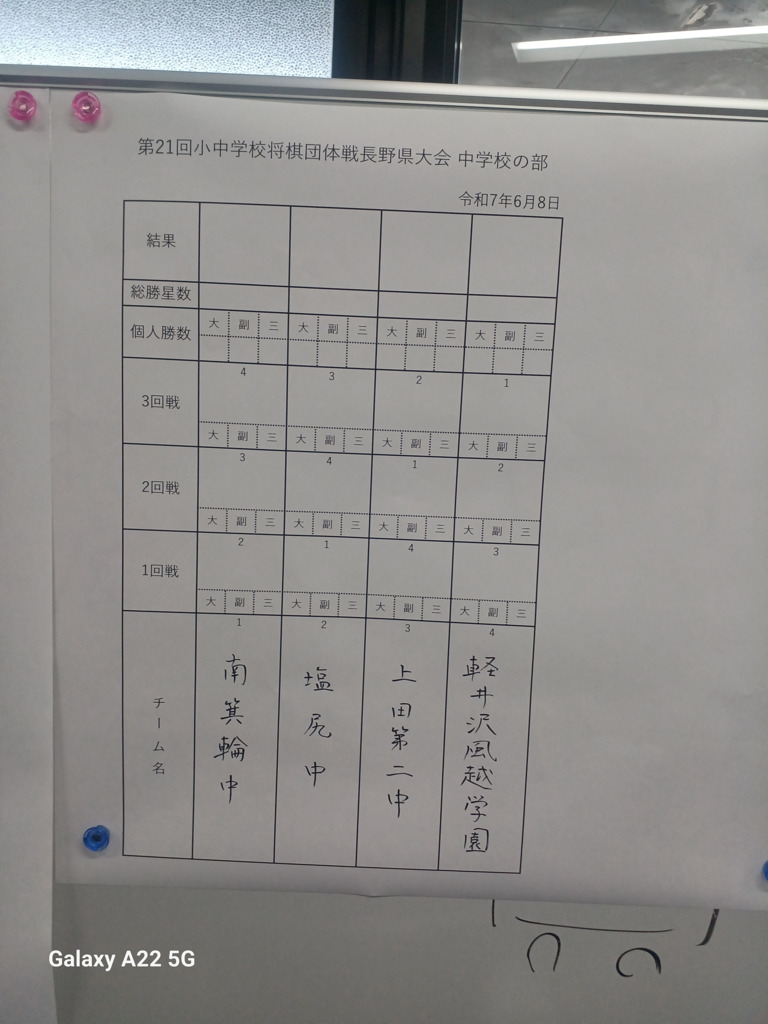 第21回小中学校将棋団体戦長野県大会 中学校の部
令和7年6月8日
結果
総勝星数
個人勝数 大 副 三 大 副 三 大 副 三 大 副 三
3回戦 4 3 2 1
大 副 三 大 副 三 大 副 三 大 副 三
2回戦 3 4 1 2
大 副 三 大 副 三 大 副 三 大 副 三
1回戦 2 1 4 3
大 副 三 大 副 三 大 副 三 大 副 三
1 2 3 4
チーム名
南箕輪中
塩尻中
上田第二中
軽井沢風越学園
Galaxy A22 5G